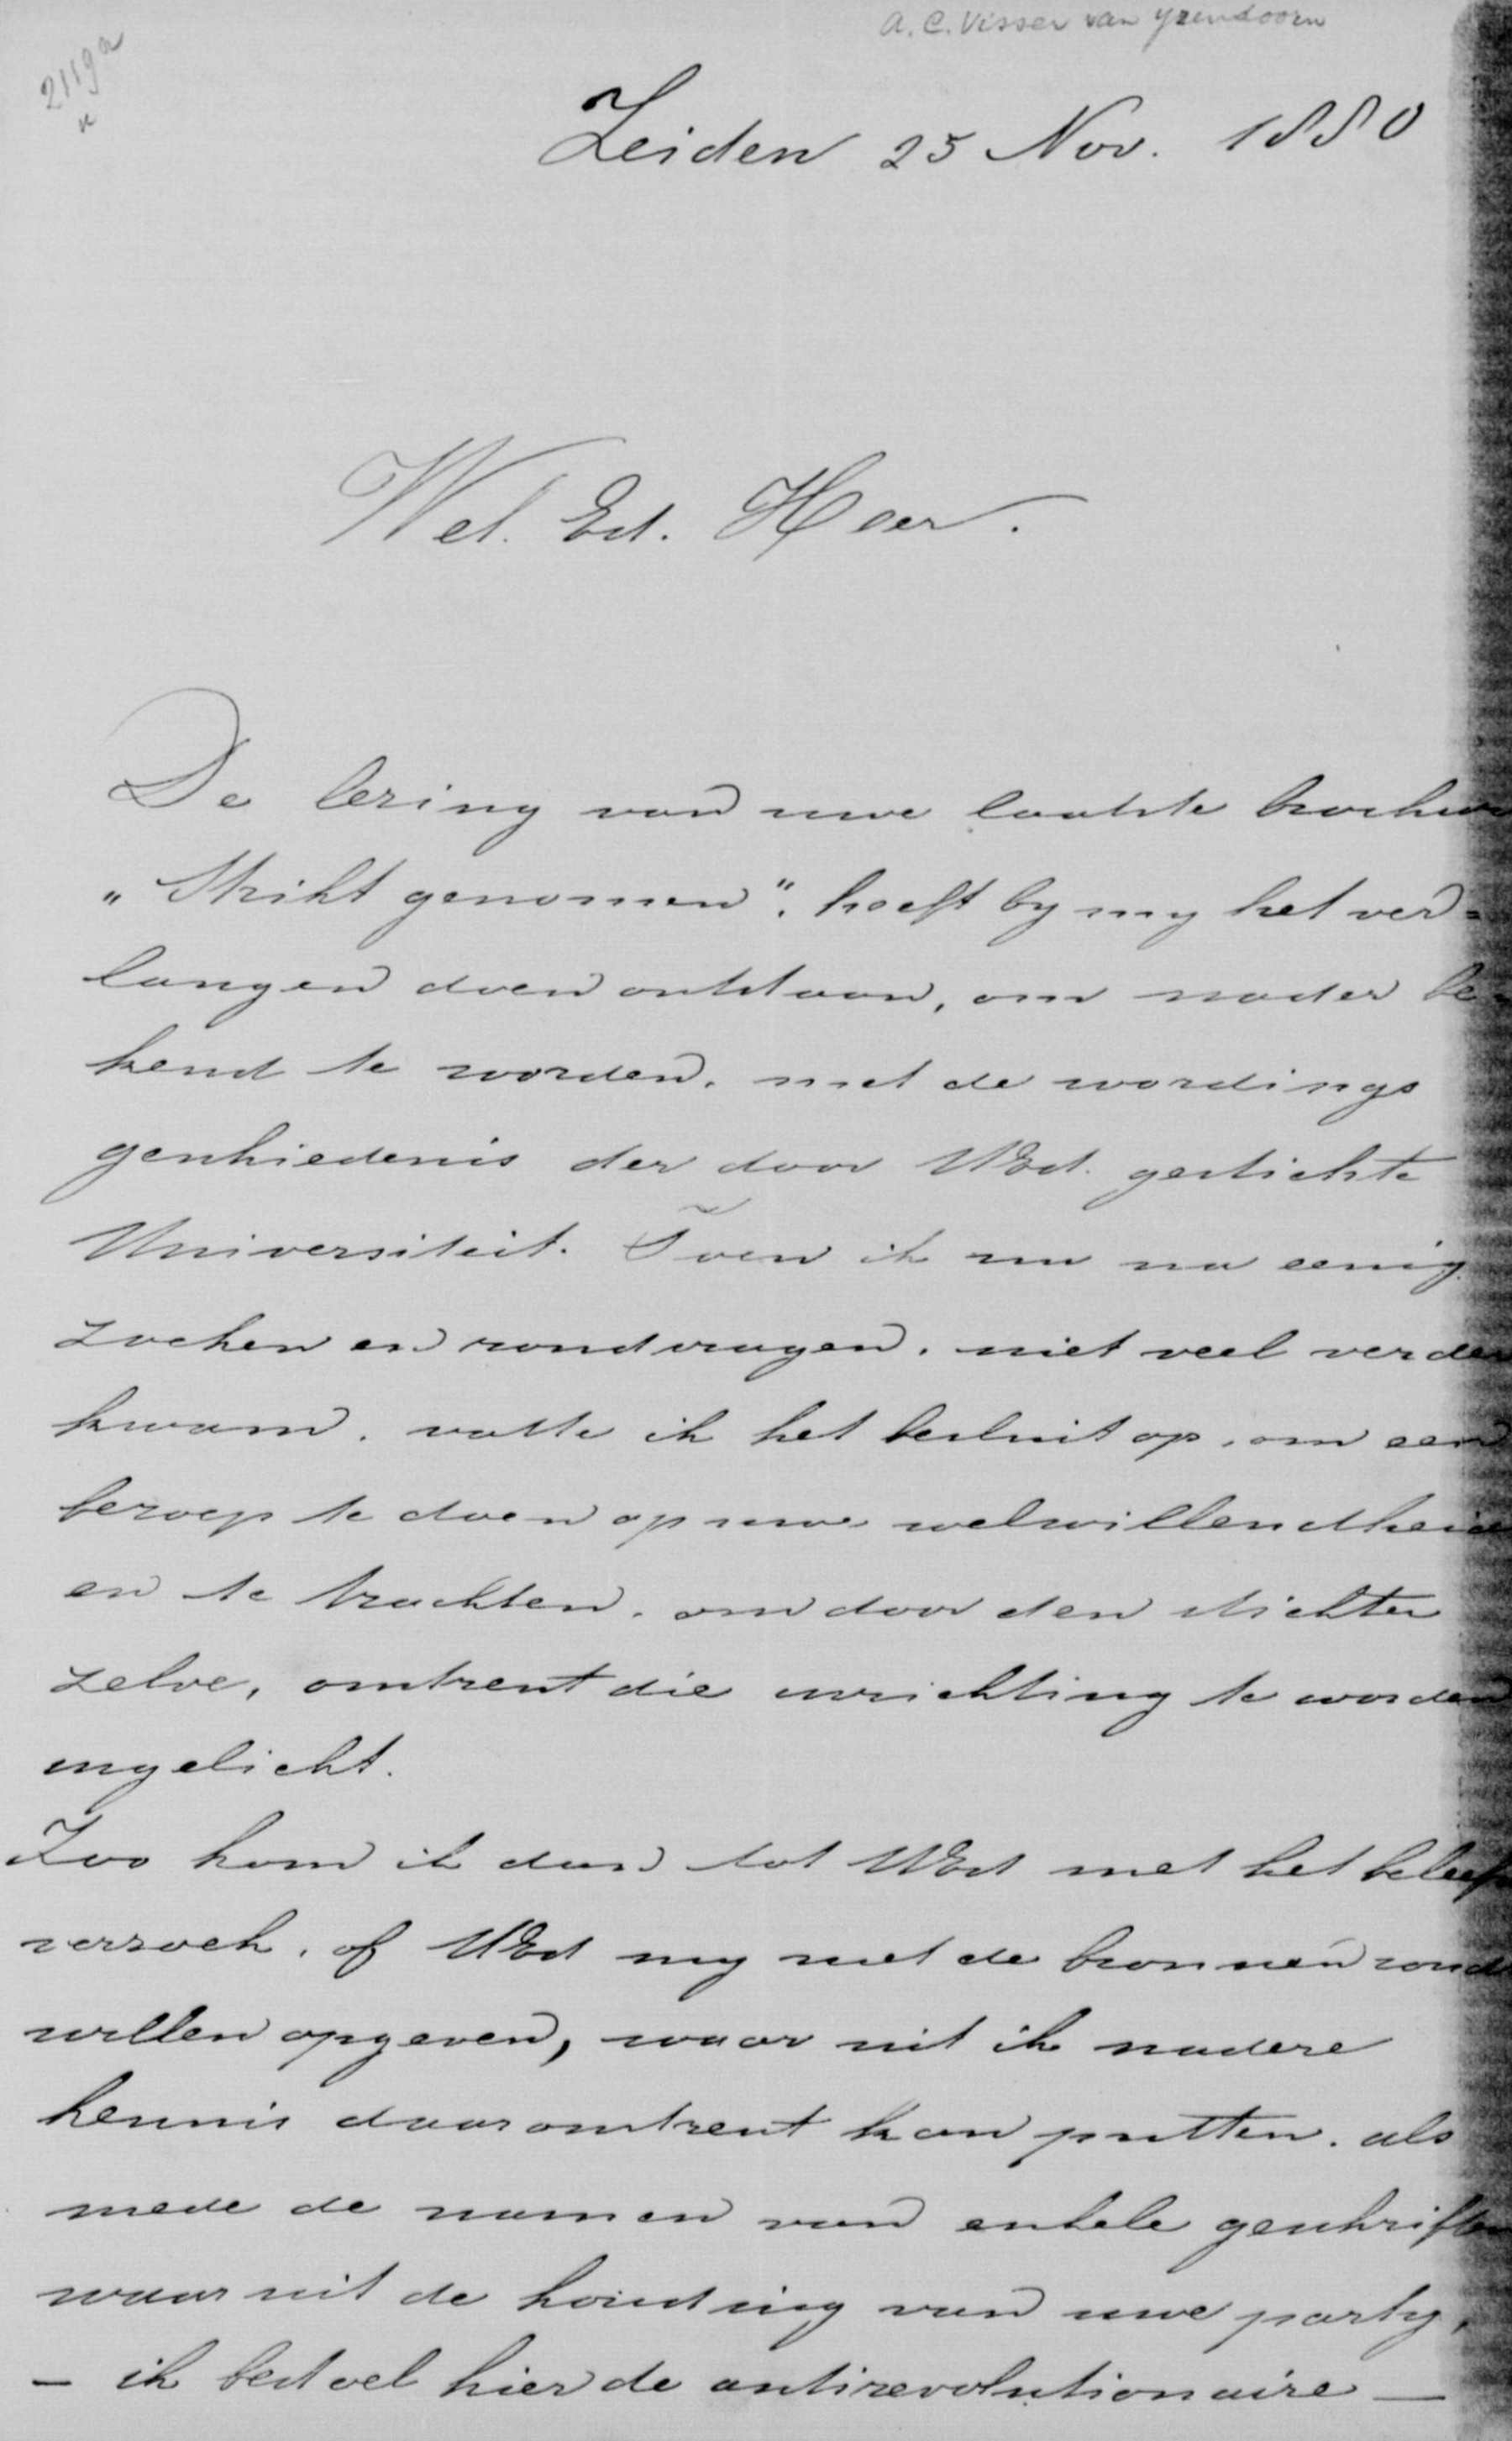 A. C. Visser van Yzendoorn
2119a
Leiden 25 Nov. 1880
Wel. Ed. Heer.
De lezing van uwe laatste brochure
„Strikt genomen", heeft by my het ver=
langen doen ontstaan, om nader be=
kend te worden, met de wordings
geschiedenis der door UEd. gestichte
Universiteit. Toen ik nu na eenig
zoeken en rondvragen, niet veel verder
kwam, vatte ik het besluit op, om een
beroep te doen op uwe welwillendheid
en te trachten, om door den stichter
zelve, omtrent die inrichting te worden
ingelicht.
Zoo kom ik dan tot UEd met het beleefd
verzoek, of UEd my met de bronnen zoudt
willen opgeven, waar uit ik nadere
kennis daaromtrent kan putten, als
mede de namen van enkele geschriften
waaruit de houding van uwe party,
— ik bedoel hier de antirevolutionaire —